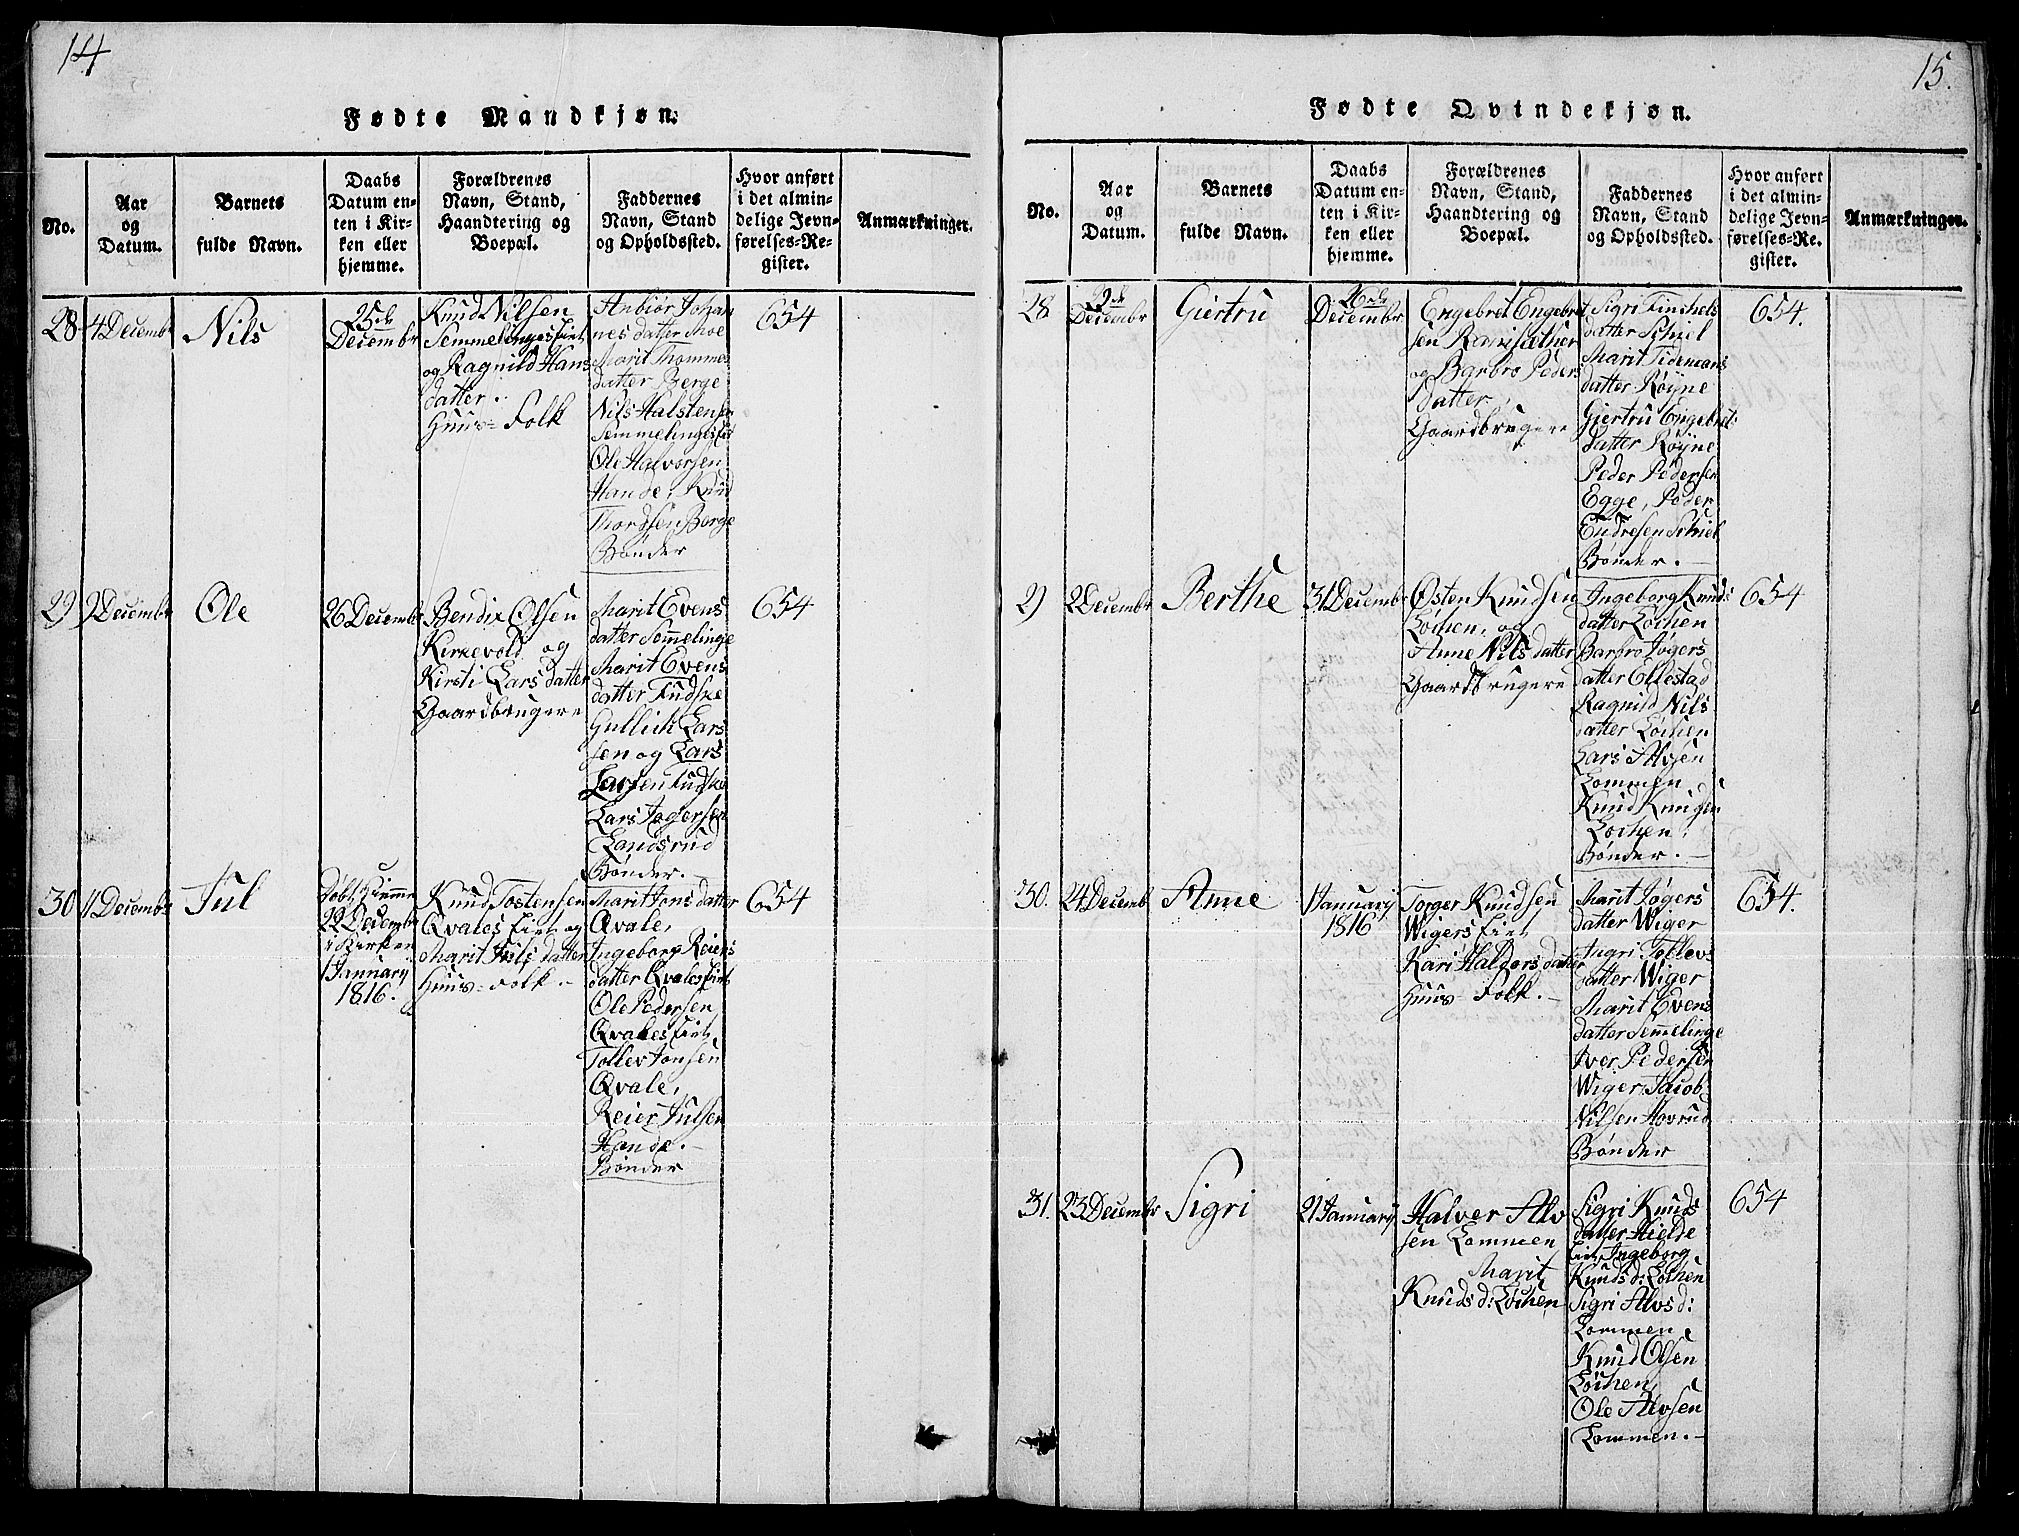 14
Fødte Mandkjøn.
No.
Aar
og
Datum.
Barnets
fulde Navn.
Daabs
Datum en-
ten i Kir-
ken eller
hjemme.
Forældrenes
Navn, Stand,
Haandtering og
Boepæl.
Faddernes
Navn, Stand
og Opholdssted.
Hvor anført
i det almin-
delige Jevn-
førelses-Re-
gister.
Anmærkninger.
28
4 Decembr
Nils
25de
Decembr
Knud Nilsen
SemmelingesEiet
og Ragnild Hans
datter.
Huus-Folk
Anbiør Johan
nes datter Moe
Marit Thommes
datter Berge
Nils Halstensen
SemmelingesEiet
Ole Halvorsen
Hande, Knud
Thordsen Berge
Bønder
654
29
9 Decembr
Ole
26 Decembr
Bendix Olsen
Kirkevold og
Kirsti Lars datter
Gaardbrugere
Marit Evens
datter Semelinge
Marit Evens
datter Fudske
Gullich Lars
sen og Lars
Larsen Fudske
Lars Jogersen
Landsrud
Bønder.
654
30
11 Decembr
Jul
Døbt Hiemme
22 Decembr
i Kirken
1 Januarij
1816.
Knud Tostensen
QvalesEiet og
Marit Juls datter
Huus-Folk.-
Marit Jons datter
Qvale,
Ingeborg Reiers
datter QvalesEiet
Ole Pedersen
QvalesEiet
Tollev Jonsen
Qvale,
Reier Julsen
Hande.-
Bønder
654
15.
Fødte Qvindekjøn.
No.
Aar
og
Datum.
Barnets
fulde Navn.
Daabs
Datum en-
ten i Kir-
ken eller
hjemme.
Forældrenes
Navn, Stand,
Haandtering og
Boepæl.
Faddernes
Navn, Stand
og Opholdsted.
Hvor anført
i det almin-
delige Jevn-
førelses-Re-
gister.
Anmærkninger.
28
Decembr
Giertru
26de
Decembr
Engebret Engebret
sen Ranisæther
og Barbro Peders
Datter,
Gaardbrugere
Sigri Finchels
datter Schiel
Marit Tidemans
datter Røyne
Giertru Engebret:
datter Røyne
Peder Pedersen
Egge, Peder
Endresen Schiel
Bønder.-
654.
29
2 Decembr
Berthe
31 Decembr
Østen Knudsen
Løchen, og
Anne Nils datter
Gaardbrugere
Ingeborg Knuds
datter Løchen
Barbro Jøgers
datter Ellestad
Ragnild Nils
datter Løchen
Lars Alvsen
Lommen
Knud Knudsen
Løchen
Bønder.-
654
30.
24 Decembr
Anne
1 Januarij
1816
Torger Knudsen
WigersEiet
Kari Haldors datter
Huus-Folk.-
Marit Jøgers
datter Wiger
Ingri Tollevs
datter Wiger
Marit Evens
datter Semelinge
Iver Pedersen
Wiger, Jacob
Nilsen Hovrud
Bønder
654.
31.
23 Decembr
Sigri
21 Januarij
Halver Alv
sen Lommen
Marit
Knuds d: Løchen
Sigri Knuds
datter Hielde
Eiet, Ingeborg
Knuds d: Løchen
Sigri Alvs d:
Lommen
Knud Olsen
Løchen,
Ole Alvsen
Lommen.-
654